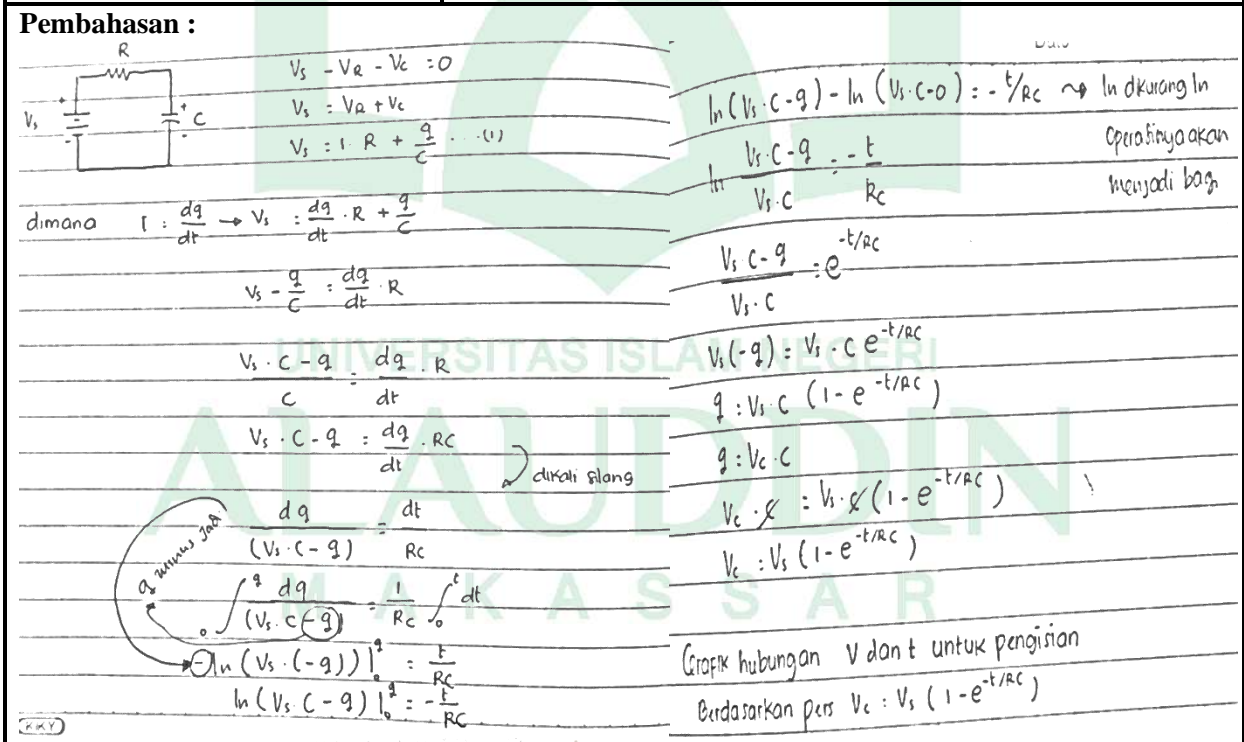 Pembahasan :
R
Vs
C
Vs - VR - Vc = 0
Vs = VR + Vc
Vs = I . R + q/C ...(1)
dimana I = dq/dt → Vs = dq/dt . R + q/C
Vs - q/C = dq/dt . R
(Vs . C - q)/C = dq/dt . R
Vs . C - q = dq/dt . RC
dikali silang
dq/(Vs . C - q) = dt/RC
q minus jadi
∫₀^q dq/(Vs . C - q) = 1/RC ∫₀^t dt
- ln (Vs . (-q)) |₀^q = t/RC
ln (Vs C - q) |₀^q = - t/RC
KKY
ln (Vs . C - q) - ln (Vs . C - 0) = - t/RC ⇝ ln dkurang ln
Operasinya akan
menjadi bagi
ln (Vs . C - q)/(Vs . C) = - t/RC
(Vs C - q)/(Vs . C) = e^-t/RC
Vs (-q) = Vs . C e^-t/RC
q = Vs . C (1 - e^-t/RC)
q = Vc . C
Vc . C = Vs . C (1 - e^-t/RC)
Vc = Vs (1 - e^-t/RC)
Grafik hubungan V dan t untuk pengisian
Berdasarkan pers Vc = Vs (1 - e^-t/RC)
UNIVERSITAS ISLAM NEGERI
ALAUDDIN
MAKASSAR